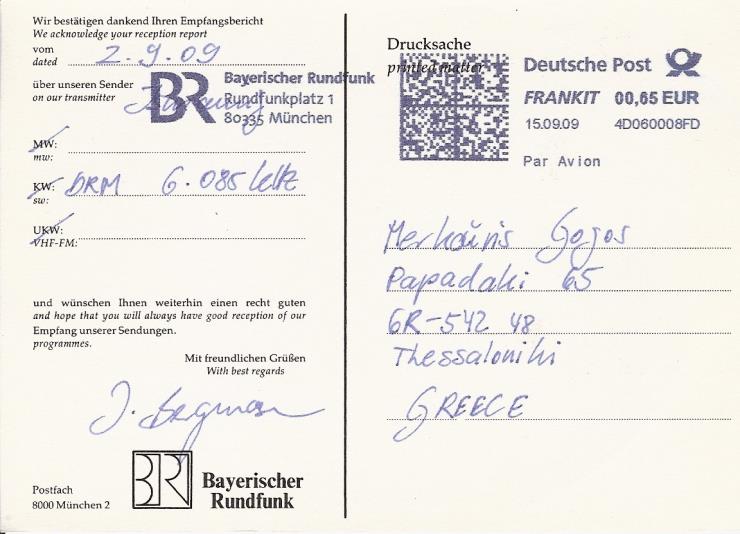 Wir bestätigen dankend Ihren Empfangsbericht
We acknowledge your reception report
vom 2.9.09
dated
über unseren Sender
on our transmitter
BR Bayerischer Rundfunk
Rundfunkplatz 1
80335 München
MW:
mw:
KW: DRM 6.085 kHz
sw:
UKW:
VHF-FM:
und wünschen Ihnen weiterhin einen recht guten
and hope that you will always have good reception of our
Empfang unserer Sendungen.
programmes.
Mit freundlichen Grüßen
With best regards
Postfach
8000 München 2
BR Bayerischer
Rundfunk
Drucksache
printed matter
Deutsche Post
FRANKIT 00,65 EUR
15.09.09 4D060008FD
Par Avion
Gogos
Papadaki 65
GR-542 48
Thessaloniki
GREECE